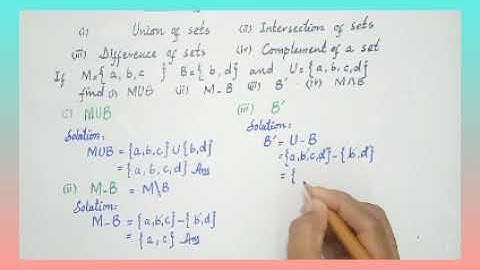 (i) Union of sets (ii) Intersection of sets
(iii) Difference of sets (iv) Complement of a set
If M={a, b, c } B={ b, d} and U={a, b, c, d}
find (i) MUB (ii) M-B (iii) B' (iv) M∩B
(i) MUB
Solution:
MUB = {a,b,c} U {b,d}
= {a, b, c, d} Ans
(ii) M-B = M\B
Solution:
M-B = {a,b,c} - {b,d}
= {a, c} Ans
(iii) B'
Solution:
B' = U - B
= {a,b,c,d} - {b,d}
= {